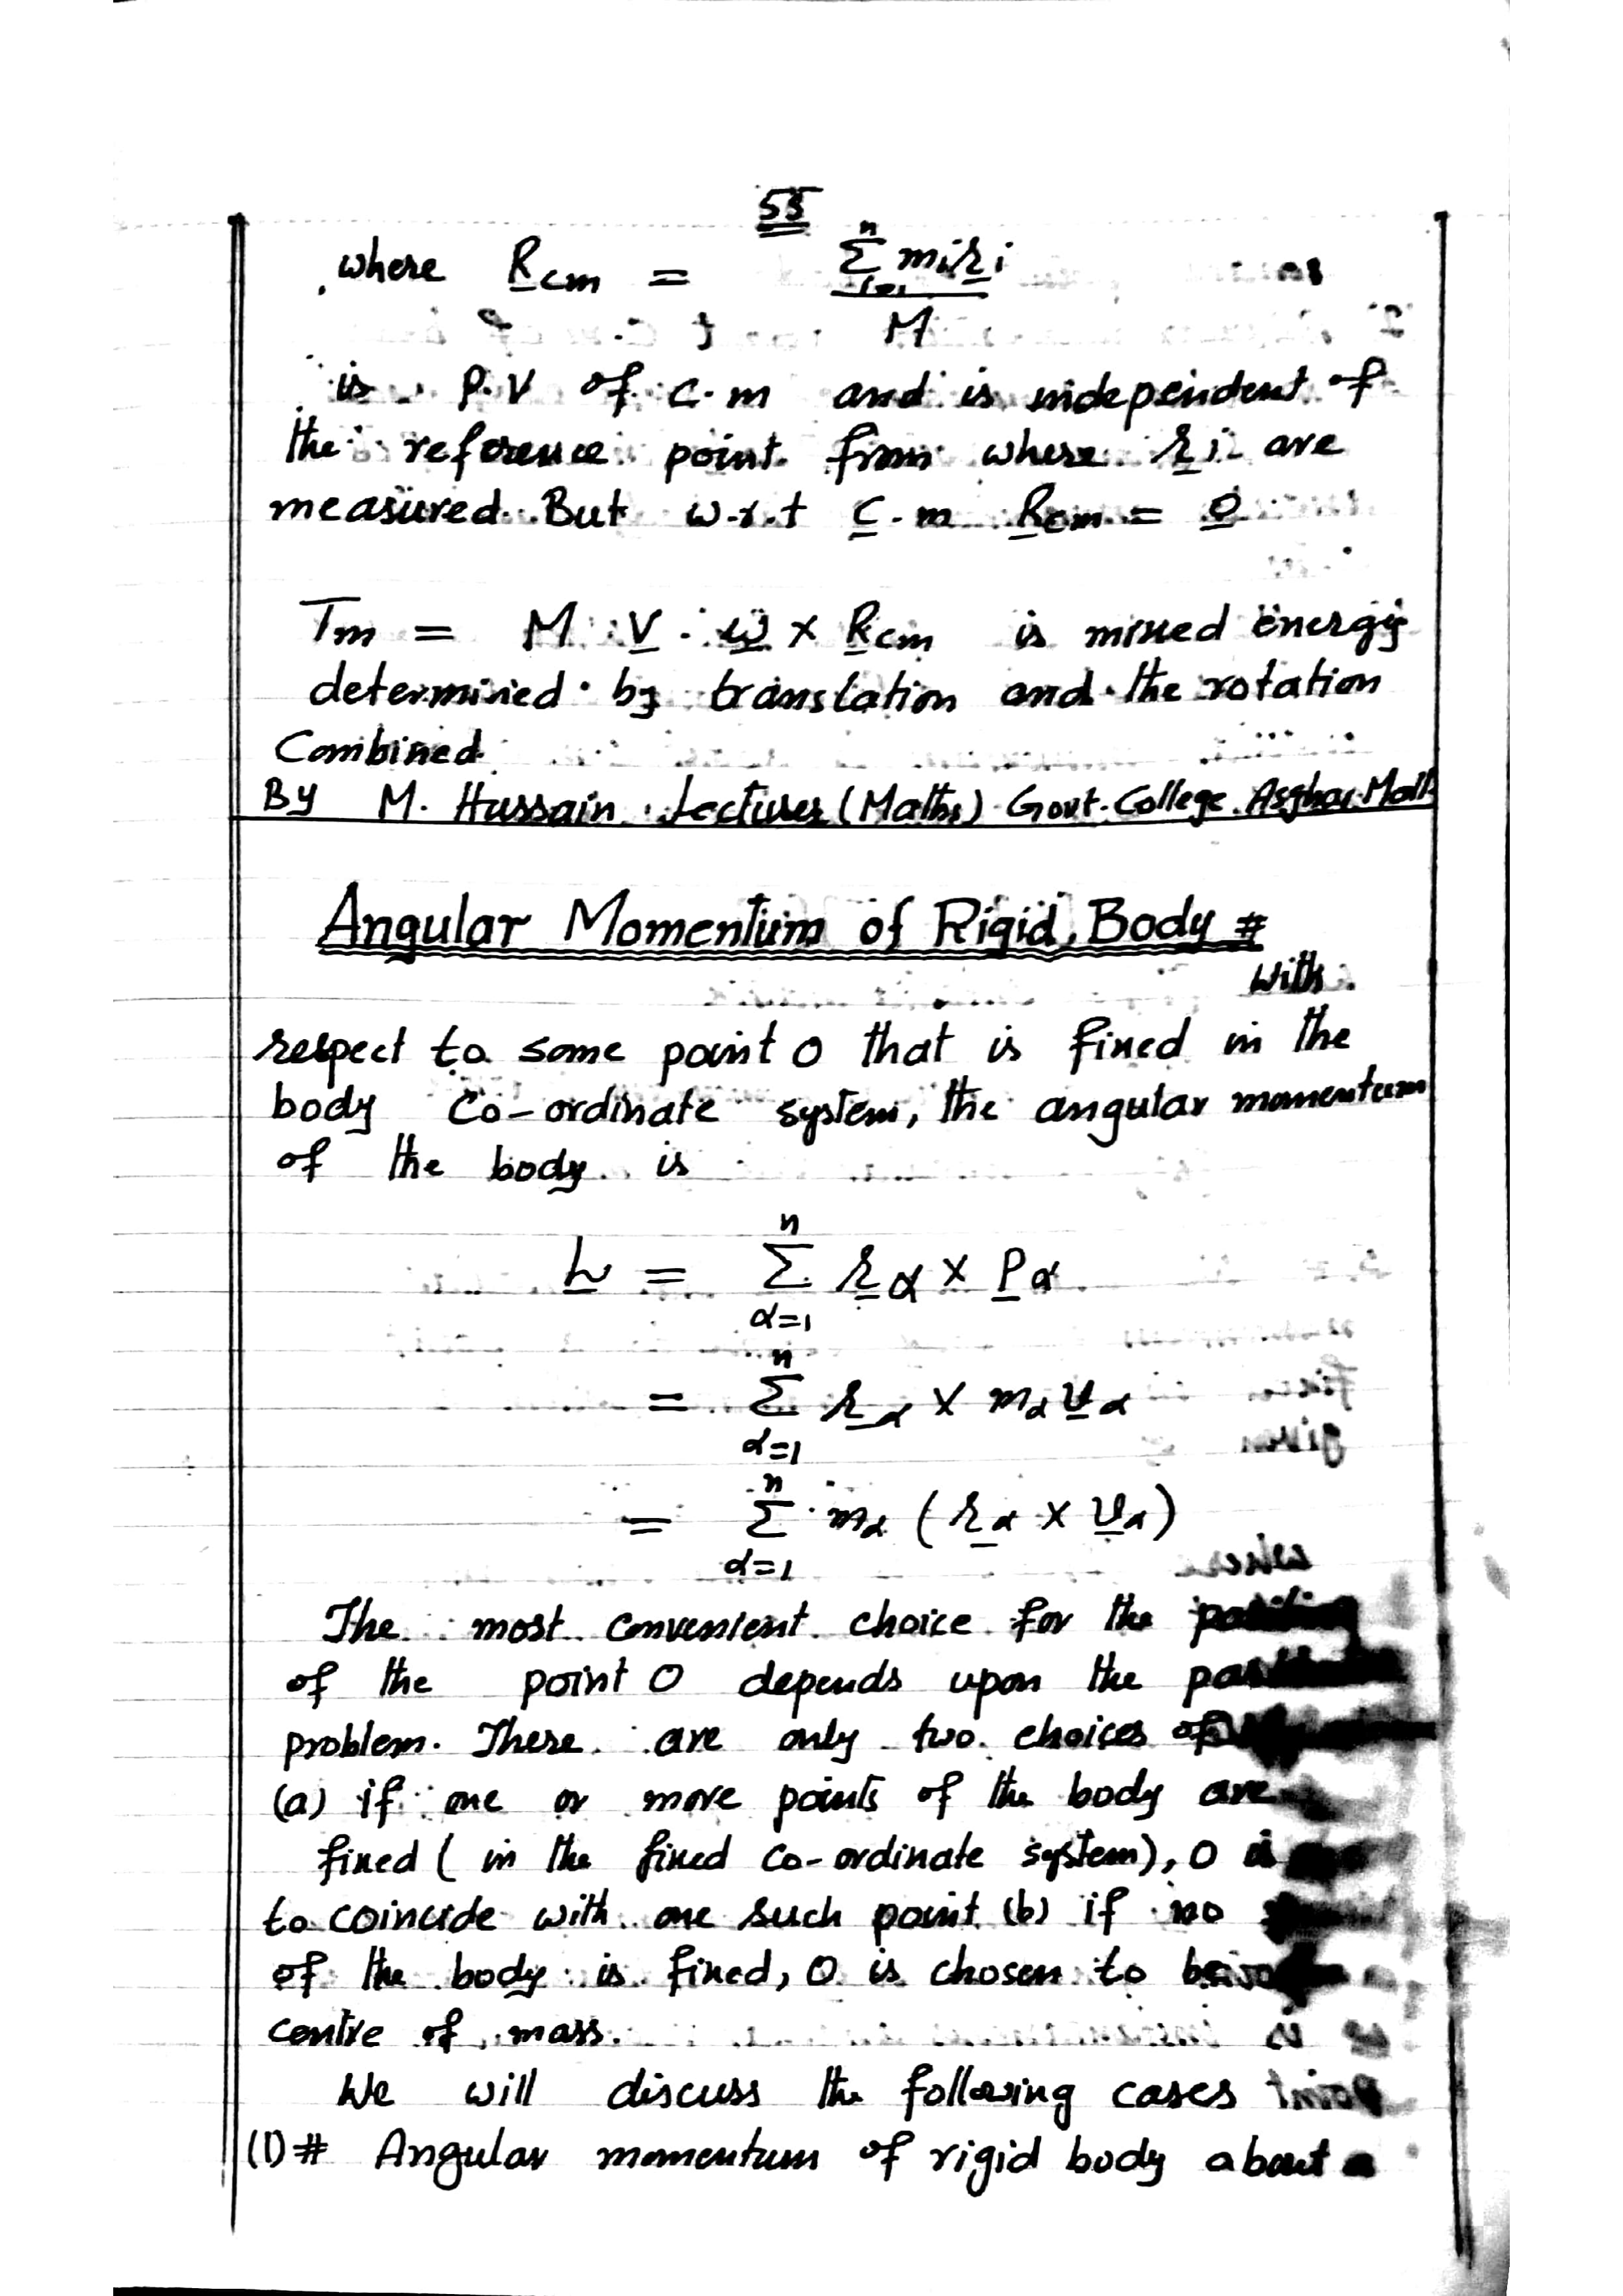 55
where R̲cm = Σⁿᵢ₌₁ mᵢ r̲ᵢ / M
is P.V of c.m and is independent of
the reference point from where r̲ᵢ are
measured. But w.r.t c.m R̲cm = 0̲
Tm = M V̲ . ω̲ × R̲cm is mixed energy
determined by translation and the rotation
Combined
By M. Hussain Lecturer (Maths) Govt. College Asghar Mall
Angular Momentum of Rigid Body #
with
respect to some point O that is fixed in the
body Co-ordinate system, the angular momentum
of the body is
L̲ = Σⁿ_α=1 r̲α × P̲α
= Σⁿ_α=1 r̲α × mα v̲α
= Σⁿ_α=1 mα (r̲α × v̲α)
The most convenient choice for the
of the point O depends upon the
problem. There are only two choices of
(a) if one or more points of the body are
fixed (in the fixed co-ordinate system), O is
to coincide with one such point (b) if no
of the body is fixed, O is chosen to be
centre of mass.
We will discuss the following cases
(1) # Angular momentum of rigid body about a